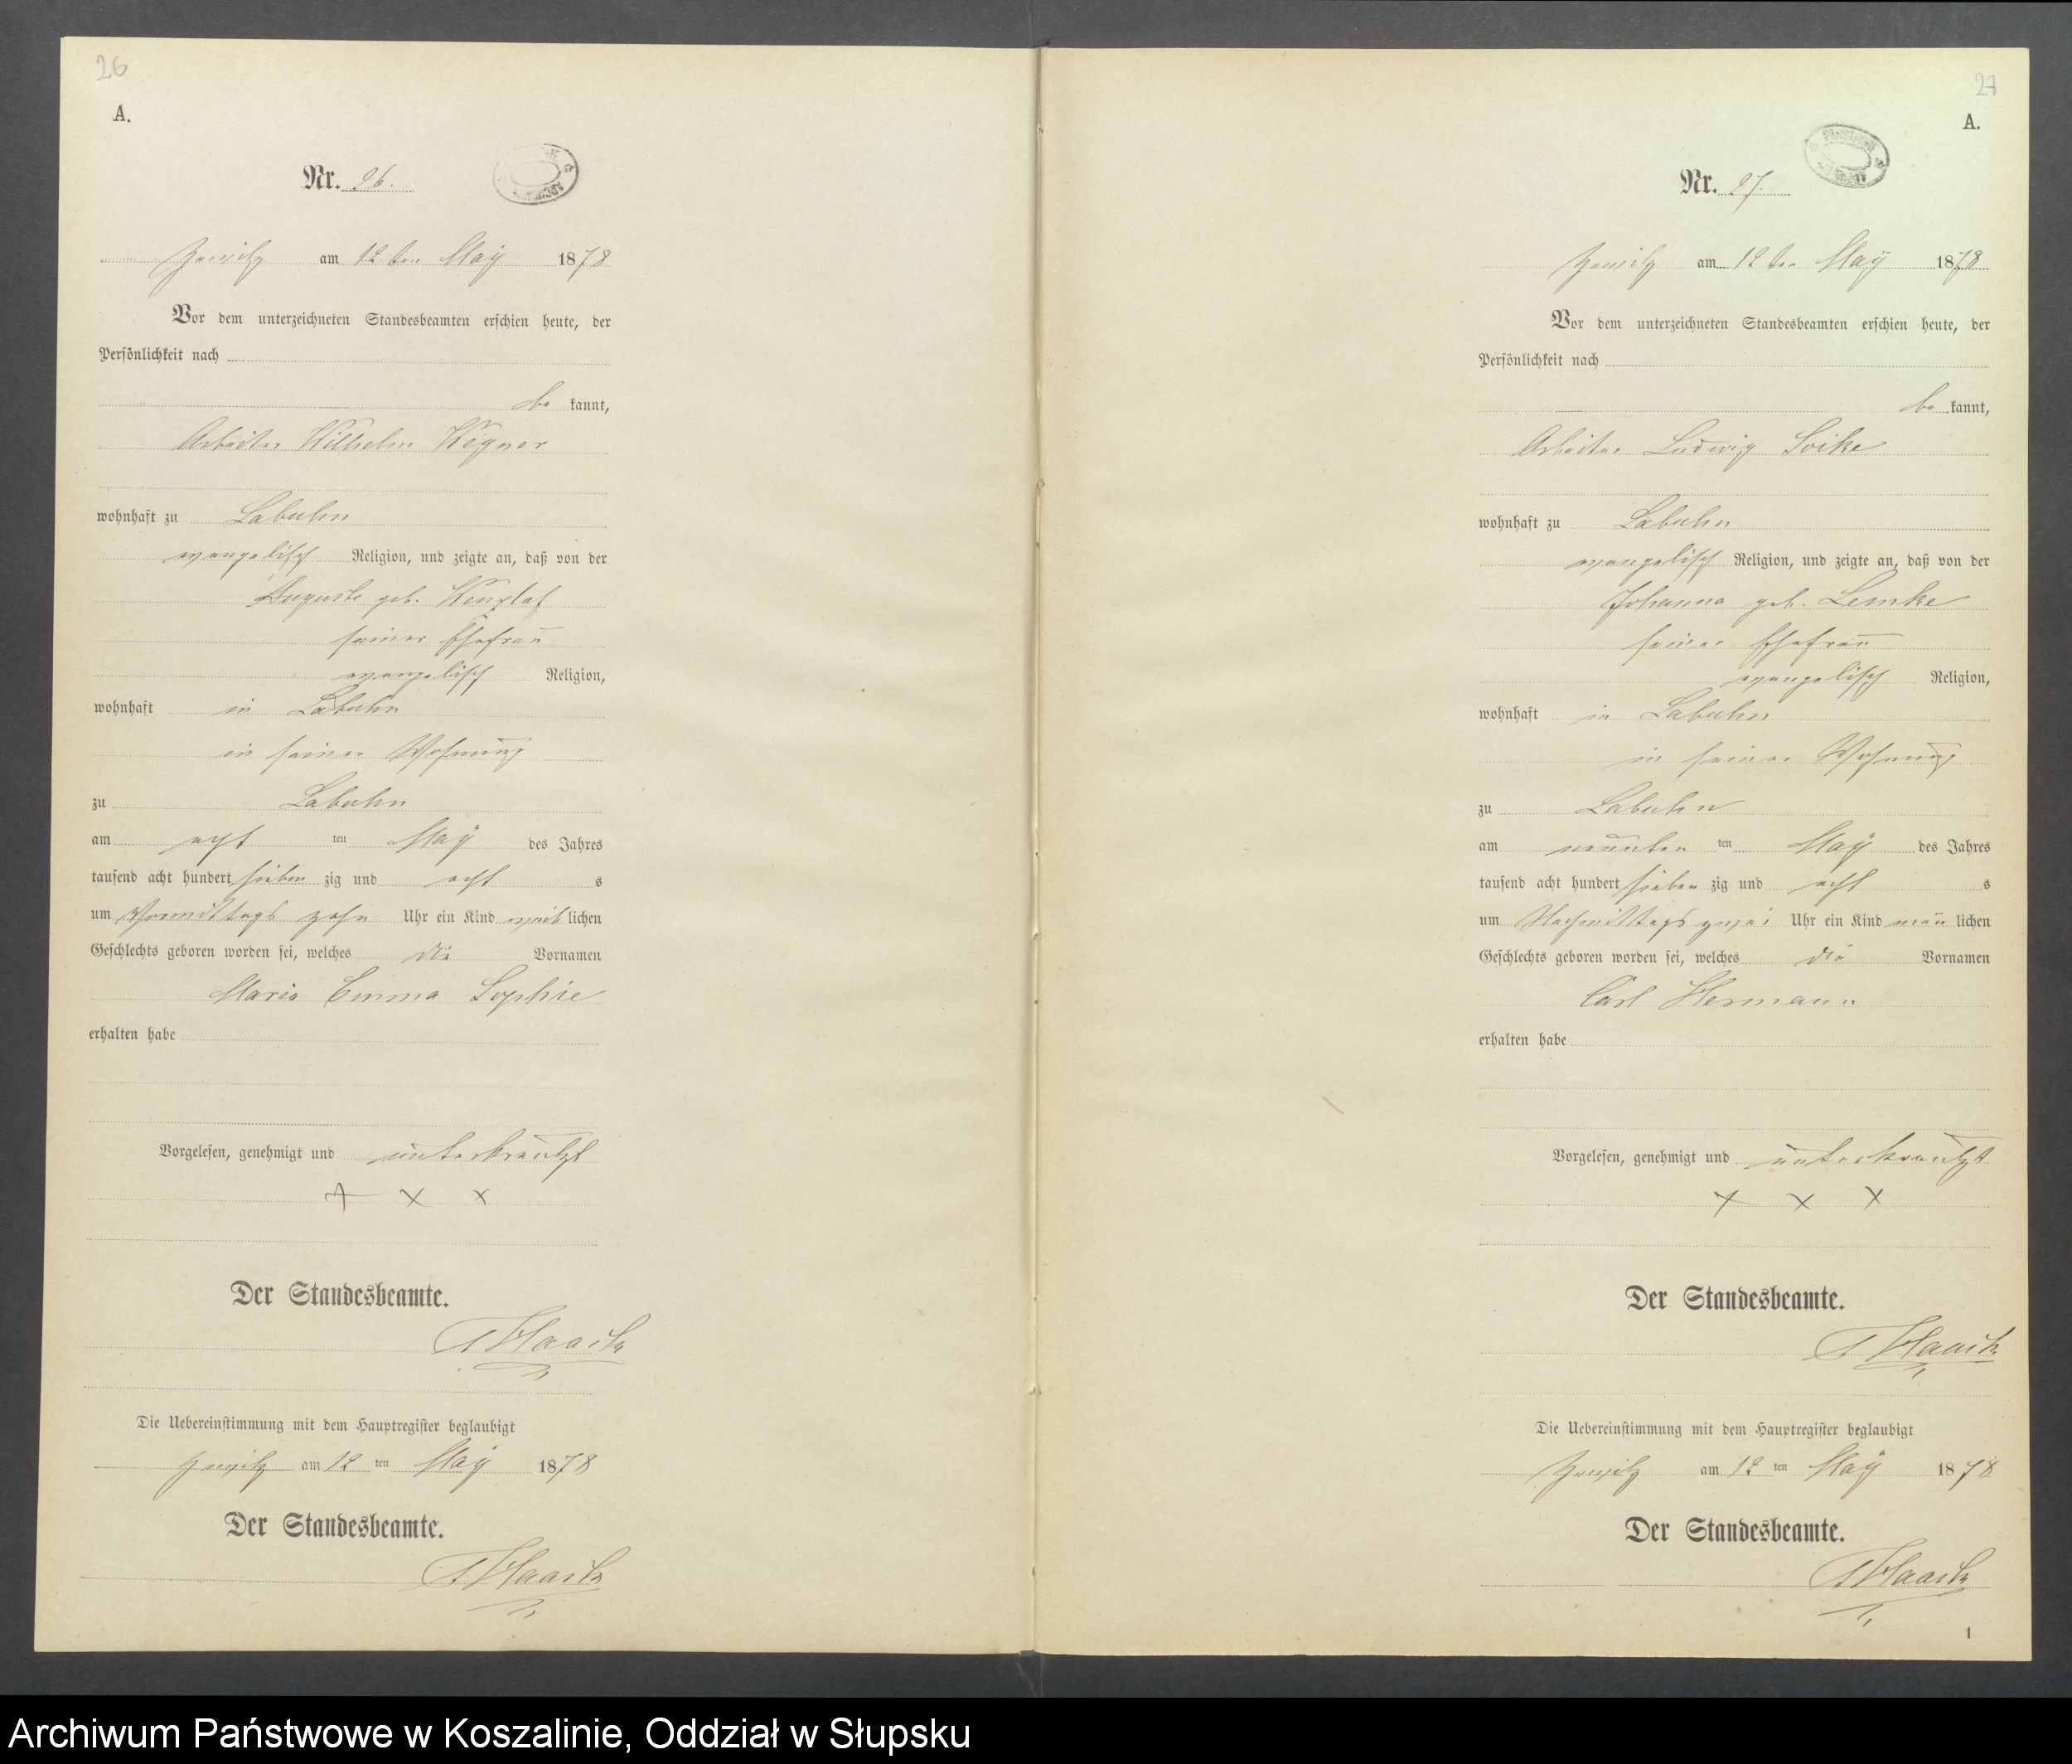 26
A.
Nr. 26.
am 12 ten May 1878
Vor dem unterzeichneten Standesbeamten erschien heute, der
Persönlichkeit nach
be kannt,
Arbeiter Wilhelm Wegner
wohnhaft zu Labuhn
evangelisch Religion, und zeigte an, daß von der
Auguste geb.
seiner Ehefrau
evangelisch Religion,
wohnhaft in Labuhn
in seiner Wohnung
zu Labuhn
am acht ten May des Jahres
tausend acht hundert sieben zig und acht s
um Vormittags zehn Uhr ein Kind weib lichen
Geschlechts geboren worden sei, welches die Vornamen
Maria Emma Sophie
erhalten habe
Vorgelesen, genehmigt und unterkreutzt
+ x x
Der Standesbeamte.
Die Uebereinstimmung mit dem Hauptregister beglaubigt
am 12 ten May 1878
Der Standesbeamte.
27
A.
Nr. 27.
am 12 ten May 1878
Vor dem unterzeichneten Standesbeamten erschien heute, der
Persönlichkeit nach
be kannt,
Arbeiter Ludwig Soike
wohnhaft zu Labuhn
evangelisch Religion, und zeigte an, daß von der
Johanna geb. Lemke
seiner Ehefrau
evangelisch Religion,
wohnhaft in Labuhn
in seiner Wohnung
zu Labuhn
am neunten ten May des Jahres
tausend acht hundert sieben zig und acht s
um Nachmittags zwei Uhr ein Kind män lichen
Geschlechts geboren worden sei, welches die Vornamen
Carl Hermann
erhalten habe
Vorgelesen, genehmigt und unterkreutzt
+ x x
Der Standesbeamte.
Die Uebereinstimmung mit dem Hauptregister beglaubigt
am 12 ten May 1878
Der Standesbeamte.
1
Archiwum Państwowe w Koszalinie, Oddział w Słupsku